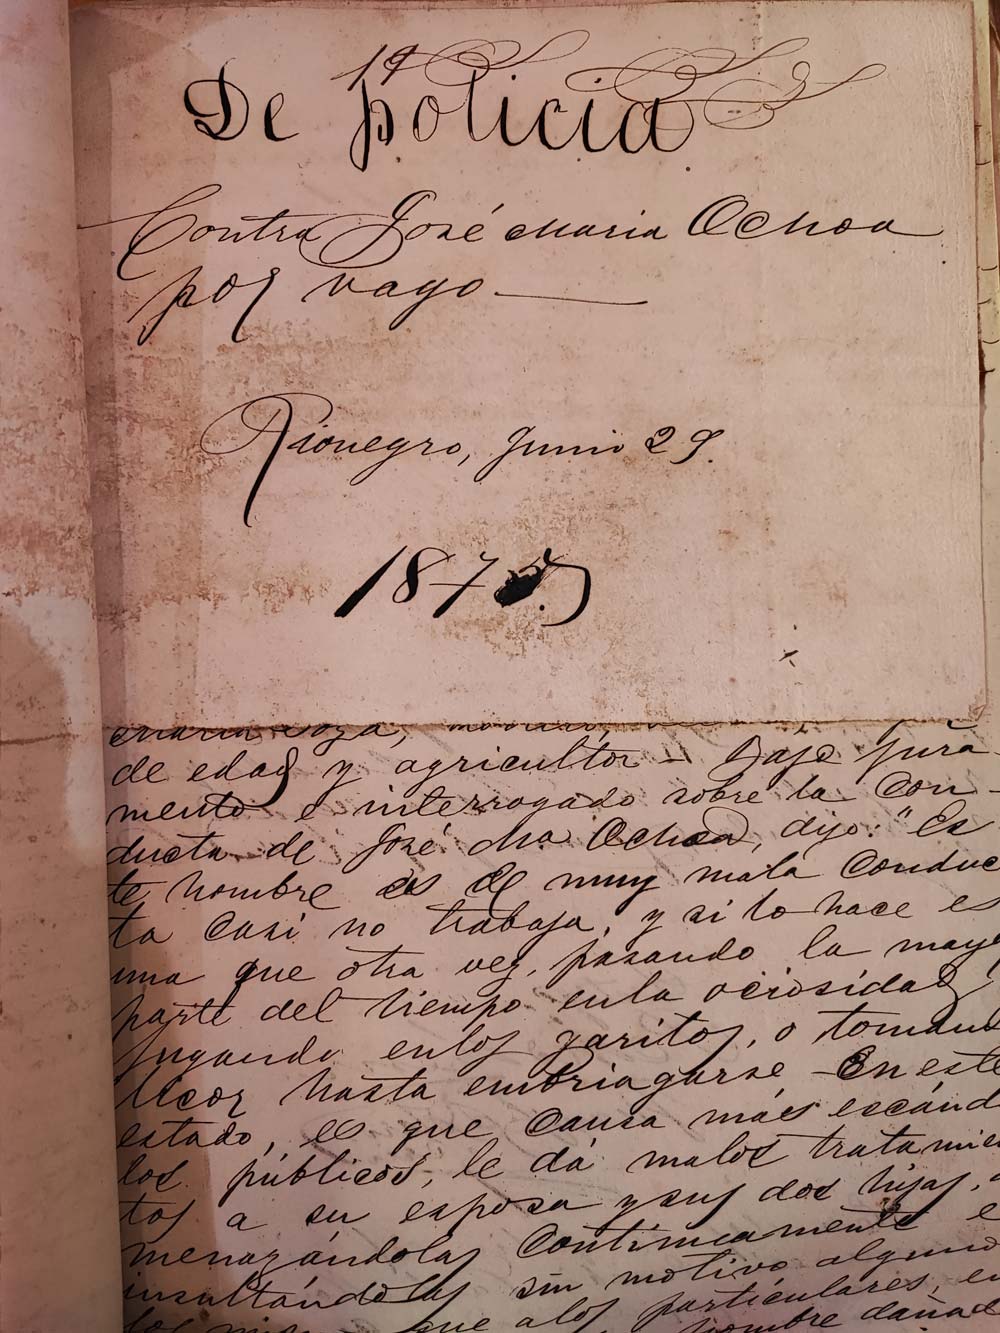 19
De policia
Contra José Maria Ochoa
por vago
Rionegro, Junio 29.
187
de edad y agricultor - Bajo jura
mento é interrogado sobre la con-
ducta de José Ma Ochoa, dijo: "Es
te hombre es de muy mala conduc
ta casi no trabaja, y si lo hace es
una que otra vez, pasando la mayo
parte del tiempo en la ociosidad
jugando en los garitos, o tomando
licor hasta embriagarse - En este
estado, es que causa más escánd
los públicos, le dá malos tratamien
tos a su esposa y sus dos hijas, a
menazándolas continuamente e
insultándolas sin motivo alguno
que a los particulares, e
hombre dañad